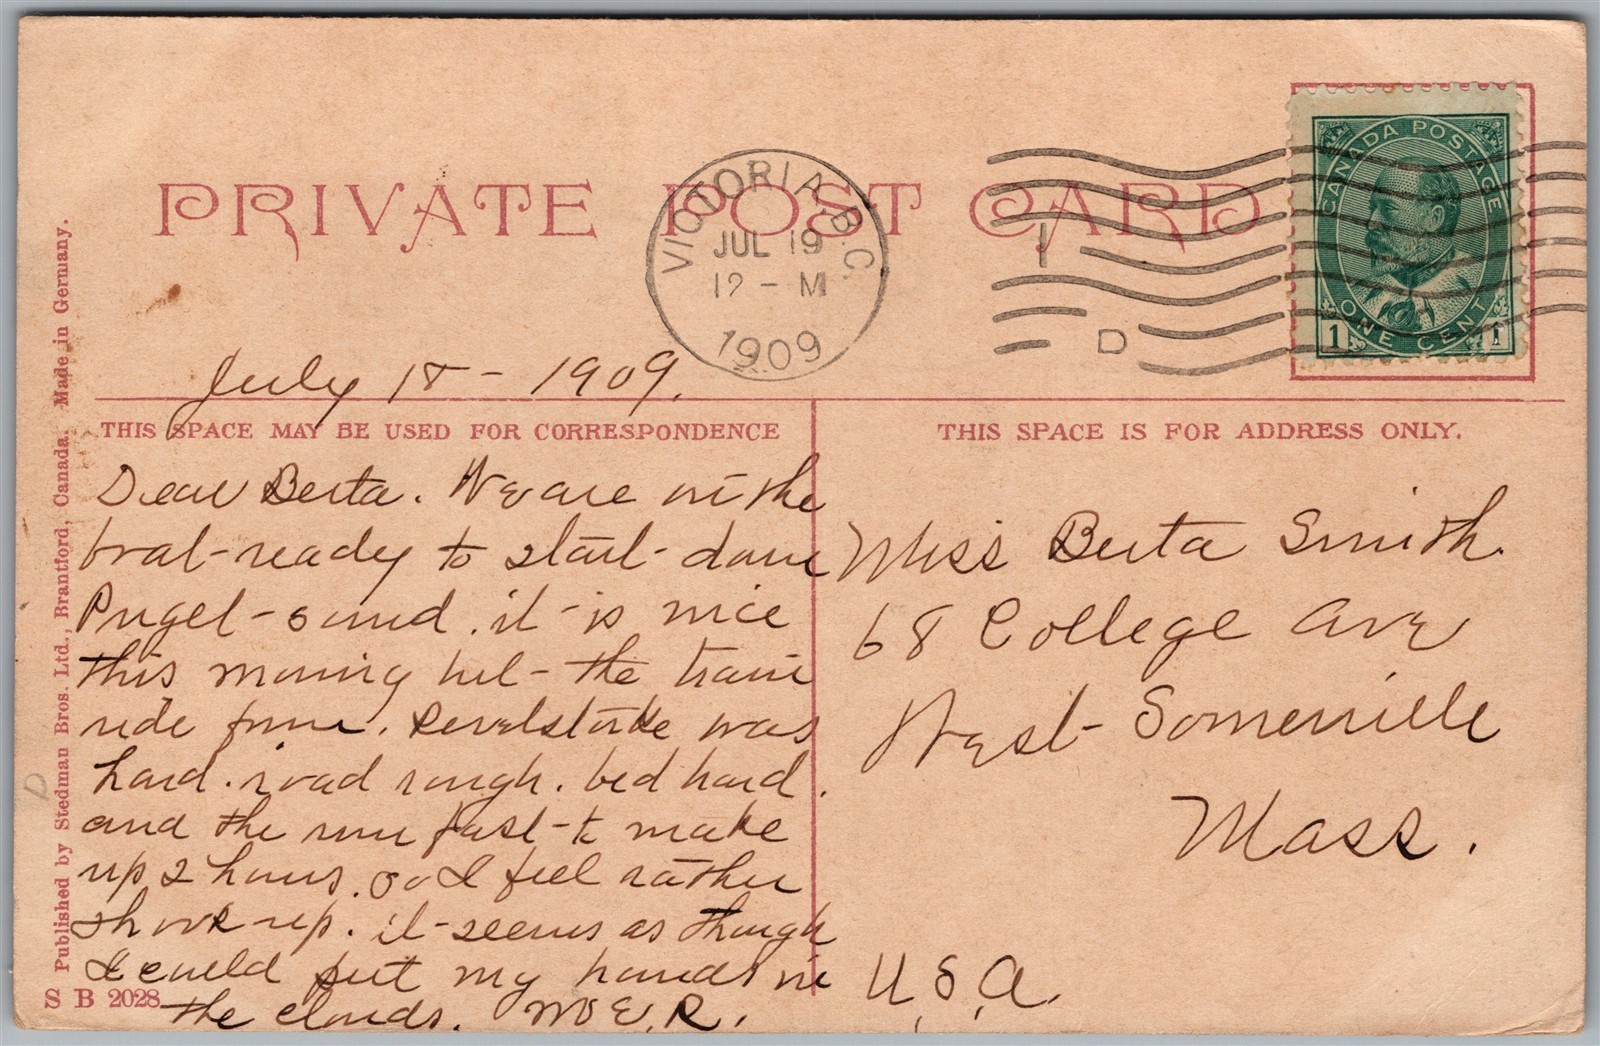 PRIVATE POST CARD
VICTORIA, B.C.
JUL 19
12 - M
1909
I
D
CANADA POSTAGE
1 ONE CENT 1
July 18 - 1909.
THIS SPACE MAY BE USED FOR CORRESPONDENCE
THIS SPACE IS FOR ADDRESS ONLY.
Dear Berta. We are on the
boat - ready to start - down
Puget - sound. it - is nice
this morning but - the train
ride from. Revelstoke was
hard. road rough. bed hard.
and the run fast - to make
up 2 hours. so I feel rather
shook - up. it - seems as though
I could put my hands in
the clouds. M E. R.
Miss Berta Smith.
68 College Ave
West - Somerville
Mass.
U. S. A.
Published by Stedman Bros. Ltd., Brantford, Canada. Made in Germany.
S B 2028